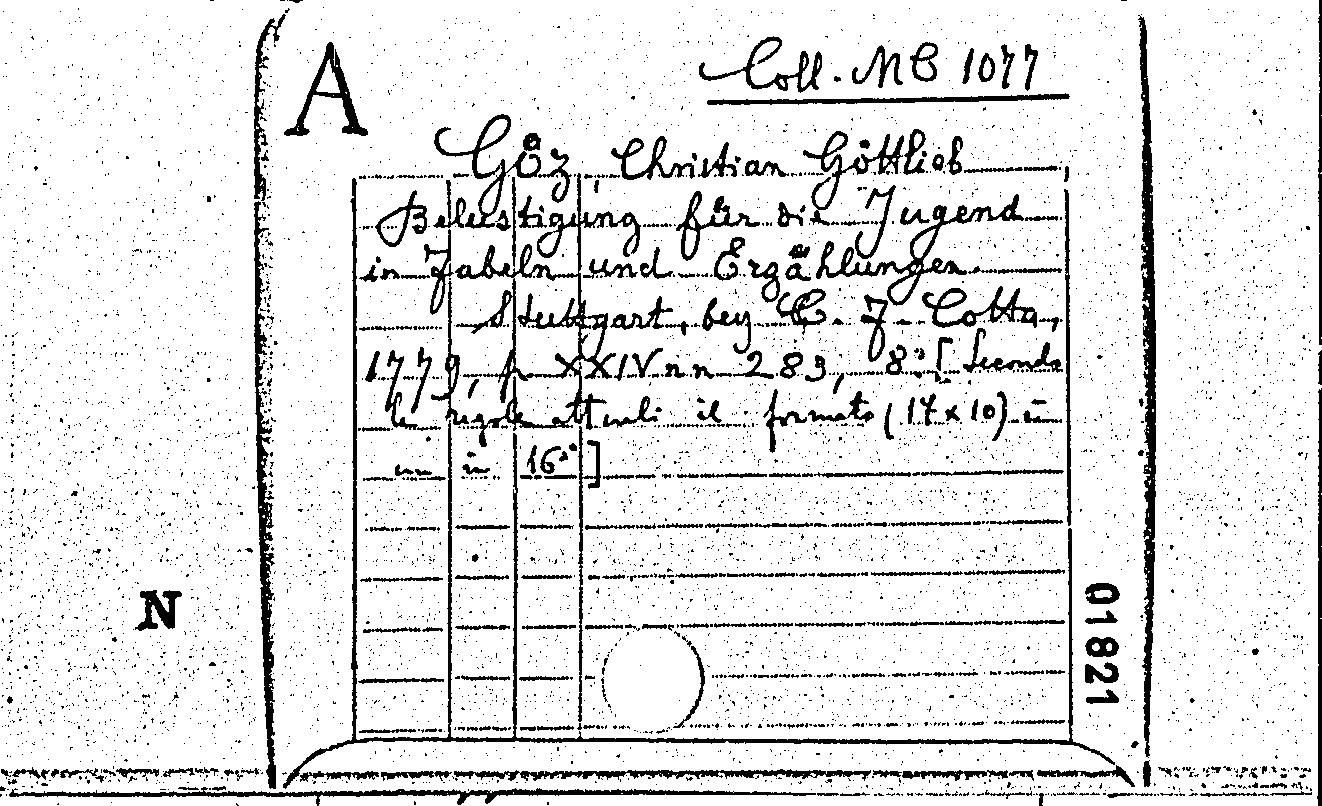 A
Coll. MC 1077
Göz, Christian Göttlieb
Belustigung für die Jugend
in Fabeln und Erzählungen.
Stuttgart, bey C. F. Cotta,
1779, p XXIV nn 283, 8.° [Secondo
le regole attuali il formato (17x10) è
un in 16°°]
N
01821